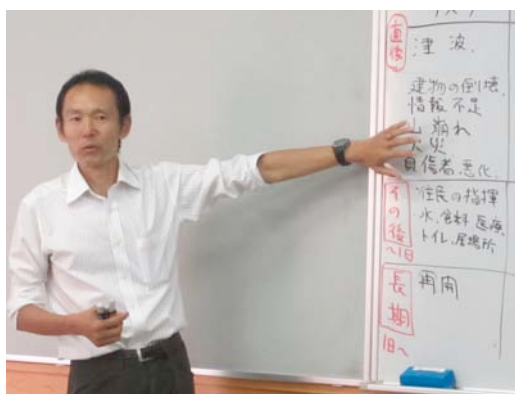 直後
津 波.
建物の倒壊.
情報不足
山崩れ
火災
負傷者.悪化.
その後
~1日
・住民の指揮
・水.食料 医療
トイレ.居場所
長期
1日~
再開